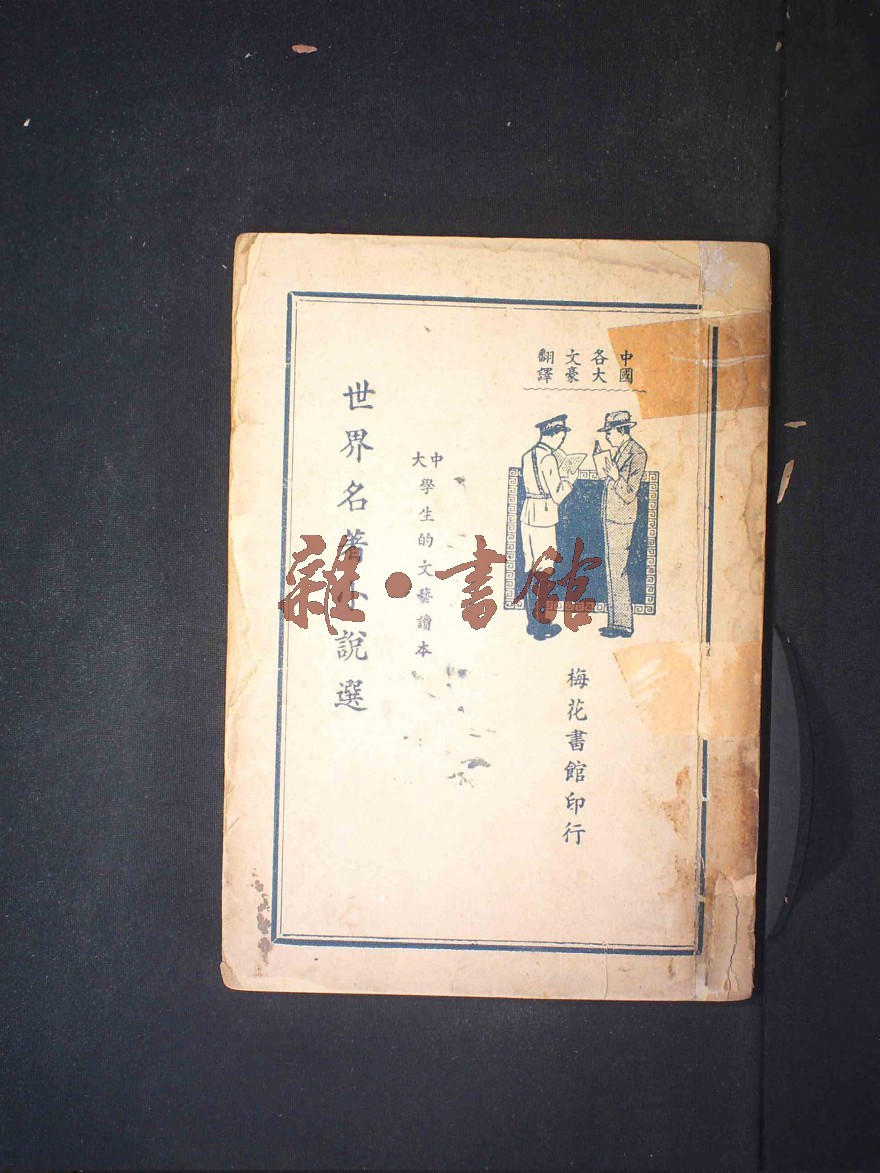 中國
各大
文豪
翻譯
梅花書館印行
中大學生的文藝讀本
世界名著小說選
雜·書館